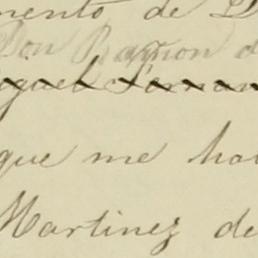 mento de D
Don Ramon d
iguel Fernan
que me hal
Martinez de